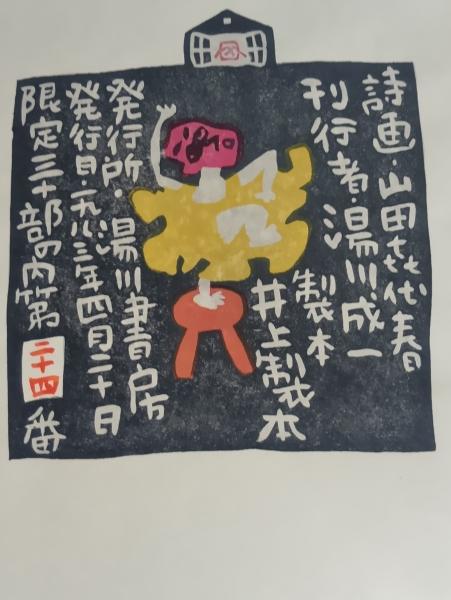 詩画・山田喜代春
刊行者・湯川成一
製本
井上製本
発行所・湯川書房
発行日・一九八三年四月二十日
限定三十部の内第二十四番